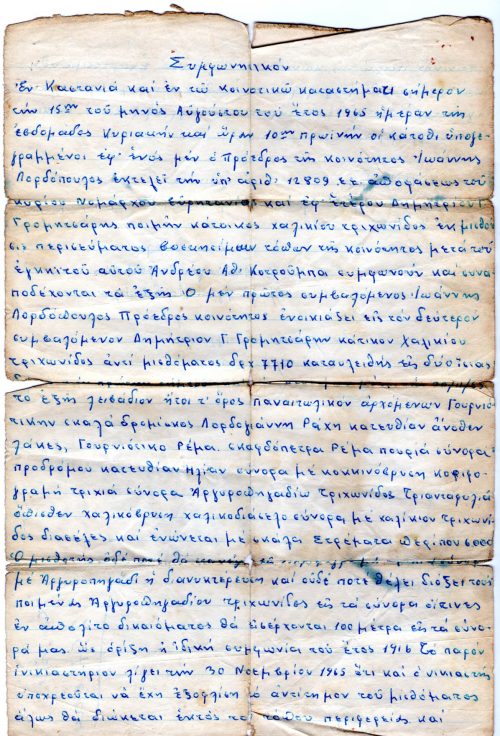 Συμφωνητικόν
Ἐν Καστανιᾷ καί ἐν τῷ κοινοτικῷ καταστήματι σήμερον
τήν 15ην τοῦ μηνός Αὐγούστου τοῦ ἔτος 1965 ἡμέραν τῆς
ἑβδομάδος Κυριακήν καί ὥραν 10ην πρωϊνήν οἱ κάτοθι ὑπογε
γραμμένοι ἐφ' ἑνός μέν ὁ Πρόεδρος τῆς κοινότητος Ἰωάννης
Λορδόπουλος ἐκτελεῖ τήν ὑπ' ἀριθ. 12809 ἀποφάσεως τοῦ
κυρίου Νομάρχου Εὐρητανίας καί ἐφ' ἑτέρου Δημητρίου
Γρομητσάρης ποιμήν κάτοικος χαλικίου τριχωνίδος ἐκμισθο
περισεύματος βοσκησίμων τόπων τῆς κοινότητος μετά τοῦ
ἐγκηιτοῦ αὐτοῦ Ἀνδρέου Αθ. Κοτρούμπα συμφωνοῦν καί συνα
ποδέχονται τά ἑξῆς Ὁ μέν πρῶτος συμβαλόμενος Ἰωάννης
Λορδόπουλος Πρόεδρος κοινότητος ἐνοικιάζει εἰς τόν δεύτερον
συμβαλόμενον Δημήτριον Γ. Γρομητσάρην κάτικον Χαλικίου
τριχωνίδος ἀντί μισθόματος δρχ 7710 καταυλειθῆς εἰς δύο
τό ἑξῆς λειβάδιον ἤτοι τ' ὄρος Παναιτωλικόν ἀρχόμενων Γουρνιό
τικην σκαλα δρομίσκος Λορδογιάννη Ράχη κατευθίαν ἄνοθεν
λάκες, Γουρνιότικο Ρέμα. σκαφδόπετρα Ρέμα πουριά σύνορα
προδρόμου κατευθίαν Ηλίαν σύνορα μέ κοκκινόβρυση κοφιρο
γραμή τριχιά σύνορα Ἀργυροπηγαδίω τριχωνίδος Τριανταφυλιά
ὄπισθεν χαλικόβρυση χαλικοδιάσελο σύνορα μέ χαλίκιον τριχωνί
δος διασέλες καί ἐνώνεται μέ σκάλα Στρέματα περίπου 6000
Ὁ μισθωτής
μέ Ἀργυροπηγάδι ἤ διανυκτερεύση καί οὐδέ ποτέ θέλει διόξει τούς
ποιμένας Ἀργυροπηγαδίου τριχωνίδος εἰς τά σύνορα οἵτινες
ἐν ἀπολίτο δικαιόματος θά εἰσέρχονται 100 μέτρα εἰς τά σύνο
ρά μας. ὡς ὁρίζη ἡ ἰδική συμφωνία τοῦ ἔτος 1916 Τό παρόν
ἐνικιαστηριον λίγει τήν 30 Νοεμβρίου 1965 ὅτι καί ὁ νικιαστής
ὑποχρεοῦται νά ἔχη ἐξοφλίση τό ἀντίτημον τοῦ μισθόματος
ἄλως θά διώκεται ἐκτός τοῦ τόπου περιφερείας καί